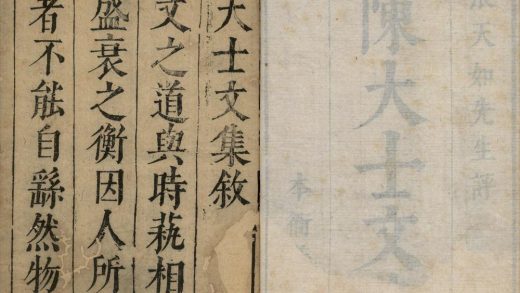 天如先生評
陳大士文
本衙
大士文集敘
文之道與時埶相
盛衰之衡因人所
者不能自繇然物